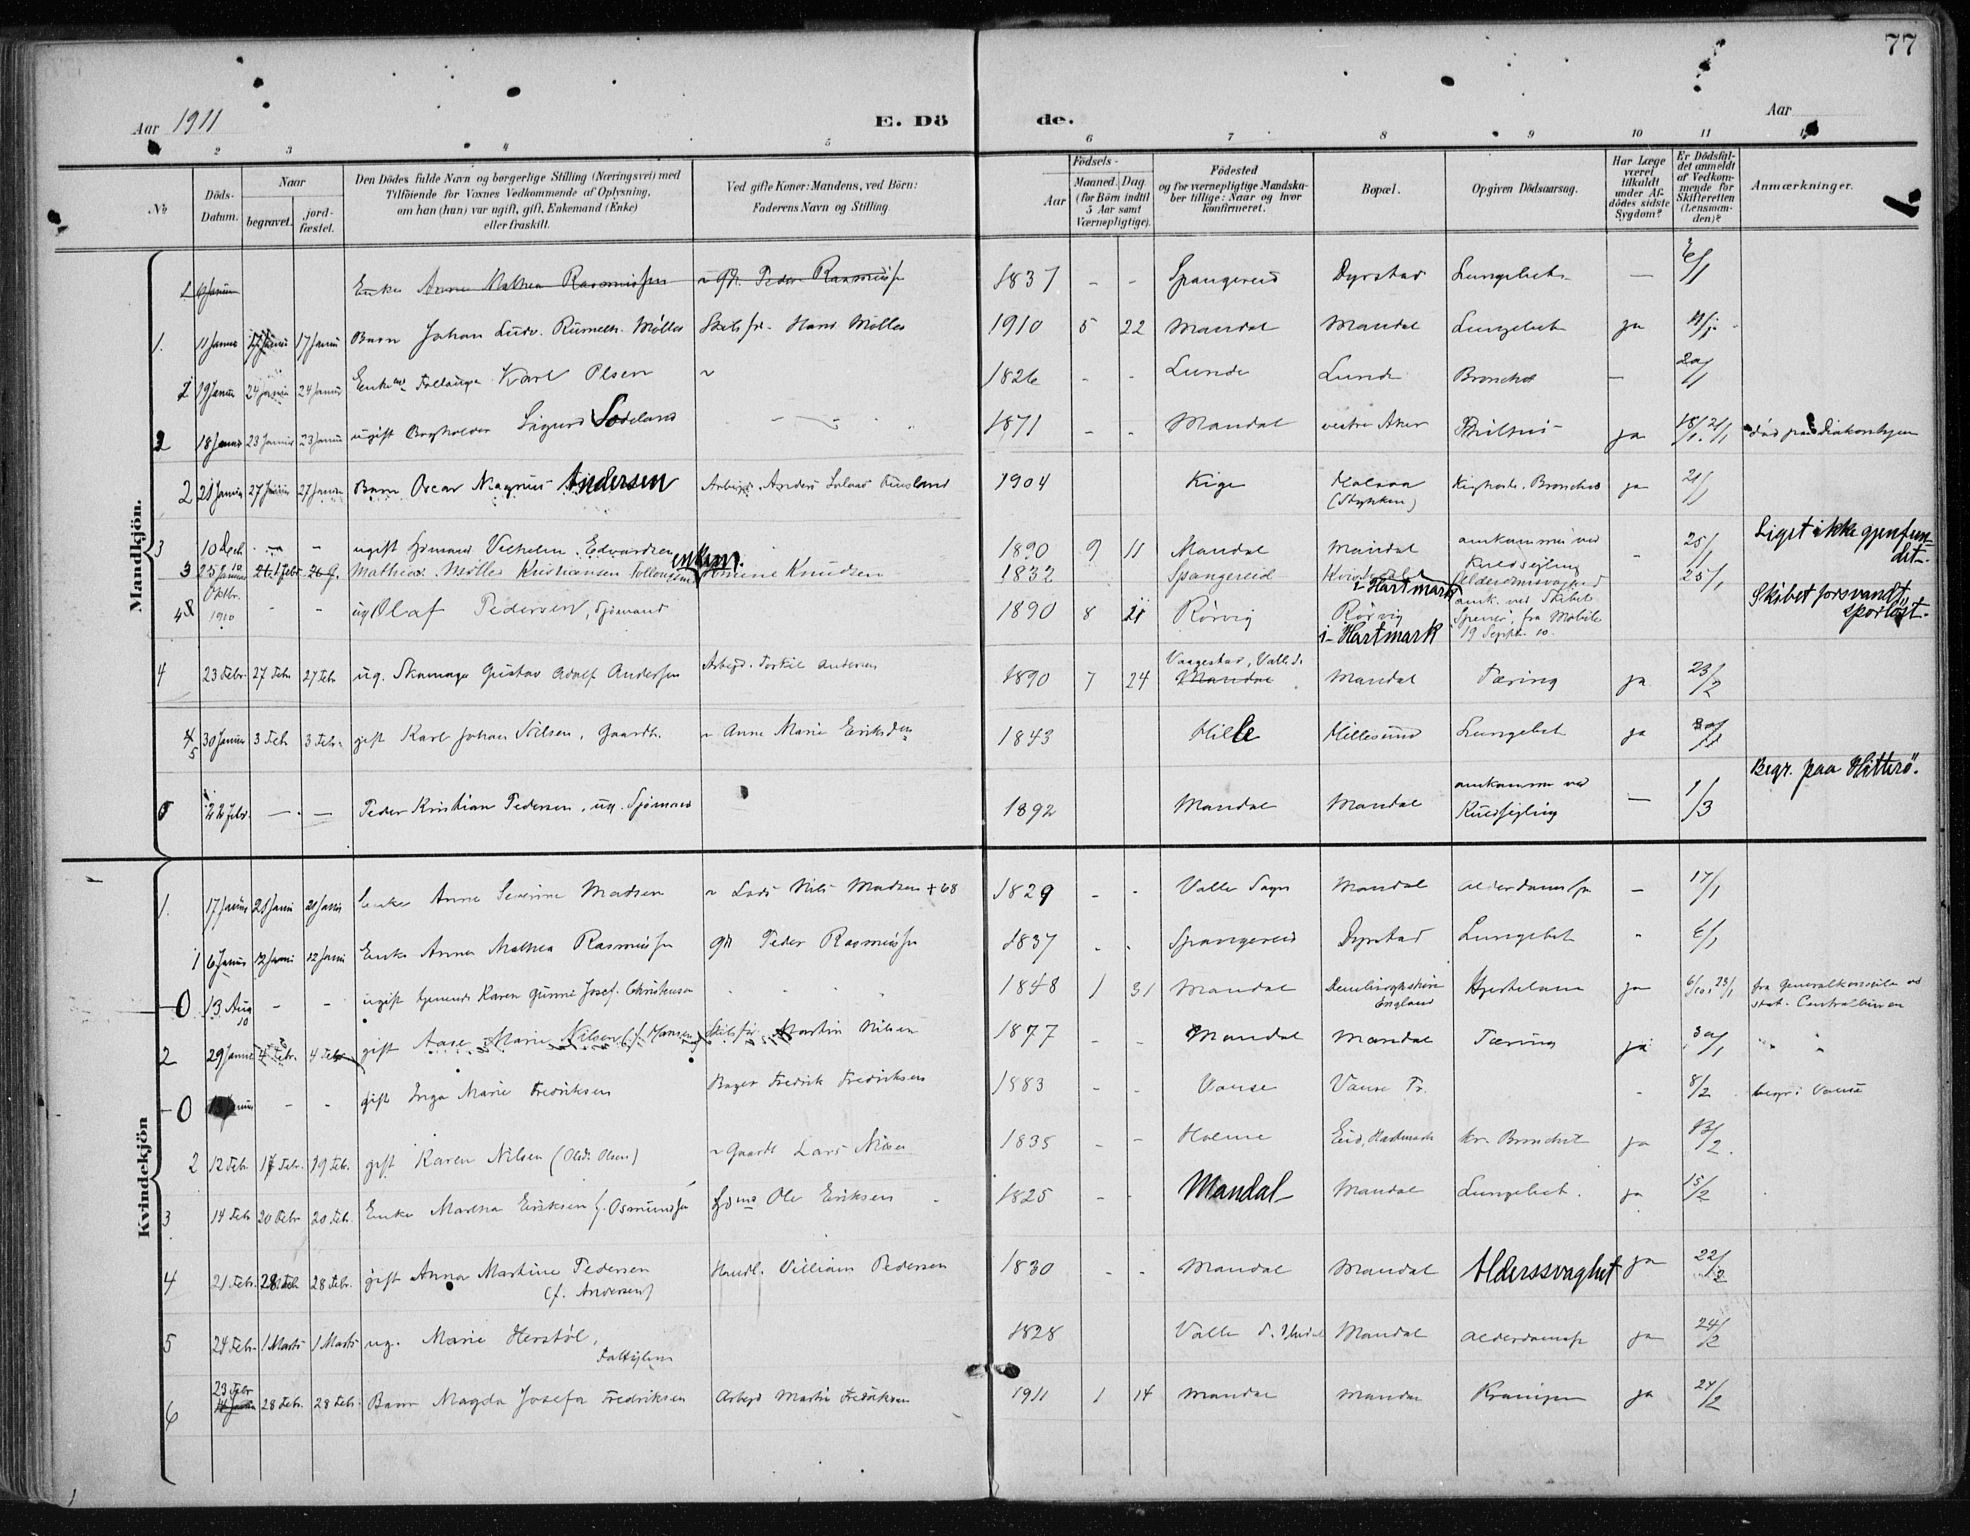 77
Aar 1911 E. Dö de. Aar
2 3 4 5 6 7 8 9 10 11
No
Döds-Datum.
Naar
begravet.
jord-fæstet.
Den Dödes fulde Navn og borgerlige Stilling (Næringsvei) med
Tilföiende for Voxnes Vedkommende af Oplysning,
om han (hun) var ugift, gift, Enkemand (Enke)
eller fraskilt.
Ved gifte Koner: Mandens, ved Börn:
Faderens Navn og Stilling.
Födsels-
Aar
Maaned. Dag
(for Börn indtil
5 Aar samt
Værnepligtige).
Födested
og for værnepligtige Mandska-
ber tillige: Naar og hvor
konfirmeret.
Bopæl.
Opgiven Dödsaarsag.
Har Læge
været
tilkaldt
under Af-
dödes sidste
Sygdom?
Er Dödsfal-
det anmeldt
af Vedkom-
mende for
Skifteretten
(Lensman-
den)?
Anmærkninger.
Mandkjön.
1 6 Januar Enke Anne Mathea Rasmussen Peder Rasmussen 1837 - - Spangereid Dyrstad Lungebet. — 6/1
1. 11 Januar 17 Januar 17 Januar Barn Johan Ludv. Møller Skibsfr. Hans Møller 1910 5 22 Mandal Mandal Lungebet ja
2 19 Januar 24 Januar 24 Januar Karl Olsen 1826 - - Lunde Lunde Bronchit —
2 18 Januar 23 Januar 23 Januar ugift Bogholder Sigurd Sodeland 1871 - - Mandal vestre Aker ja 18/1. 21/1 død paa Diakonhjem
2 21 Januar 27 Januar 27 Januar Barn Oscar Magnus Andersen Arbeid. Anders Finsland 1904 Kige Holum Kighoste. Bronchit ja 21/1
3 10 Dech - - ugift Sjømand Vilhelm Edvardsen 1890 9 11 Mandal Mandal omkommen ved Kuldseiling - 25/1 Liget ikke gjenfun-
dit.
3 25 Januar 1 Febr Mathias Møller Kristiansen enkem. Knudsen 1832 Spangereid i Hartmark 25/1
4 Oktbr. 1910 - - ug Olaf Pedersen, Sjømand 1890 8 21 Rørvig Rørvig i Hartmark omk. ved Skibet fra Mobile 19 Septr. 10. Skibet forsvandt
sporløst.
4 23 Febr. 27 Febr 27 Febr ug. Skomager Gustav Adolf Andersen Arbejd. Torkil Andersen 1890 7 24 Vaagestad, Valle S. Mandal Mandal Tæring ja 23/2
5 30 Januar 3 Febr 3 Febr. gift Karl Johan Nilsen, Gaardb. Anne Marie Eriksden 1843 Hille Hillesund Lungebet ja
5 22 Febr. — — Peder Kristian Pedersen, ug. Sjømand 1892 Mandal Mandal omkommen ved Kuldsejling — 1/3 Begr. paa Hitterö.
Kvindekjön
1. 17 Januar 21 Januar 21 Januar Enke Anne Severine Madsen Lods Nils Madsen + 68 1829 - - Valle Sogn Mandal — 17/1
1 6 Januar 12 Januar 12 Januar Enke Anne Mathea Rasmussen Peder Rasmussen 1837 Spangereid Dyrstad Lungebet 6/1
0 13 Aug 10 - - ugift Karen Gunne Josef. Christensen 1848 1 31 Mandal Denbighshire England Hjertelam ja 6/10, 23/1 fra Generalkonsulen ved
Stat. Centralbureau
2 29 Januar 4 Febr. 4 Febr gift Aase Marie Nilsen (f. Hansen) Martin Nilsen 1877 - - Mandal Mandal Tæring ja 30/1
0 - - gift Inga Marie Fredriksen Bager Fredrik Fredriksen 1883 - - Vanse Vanse Fr. - 8/2 begr. i Vanse
2 12 Febr 17 Febr. 19 Febr. gift Karen Nilsen (Olsdr. Olsen) Gaardb. Lars Nilsen 1835 - - Holme Eid, Hartmark kr. Bronchit ja 13/2
3 14 Febr 20 Febr 20 Febr. Enke Martha Eriksen f. Osmundsen Ole Eriksen 1825 - - Mandal Mandal Lungebet. ja 15/2
4 21 Febr. 28 Febr 28 Febr. gift Anna Martine Pedersen (f. Andersen) Handl. Villiam Pedersen 1830 - - Mandal Mandal Alderssvaghet ja 22/2
5 24 Febr. 1 Marts 1 Marts ug. Marie Herstöl, Fattiglem 1828 Valle S. Undal Mandal ja 24/2
6 23 Febr 28 Febr. 28 Febr. Barn Magda Josefa Fredriksen Arbeid Martin Fredriksen 1911 1 14 Mandal Mandal Kramper ja 24/2